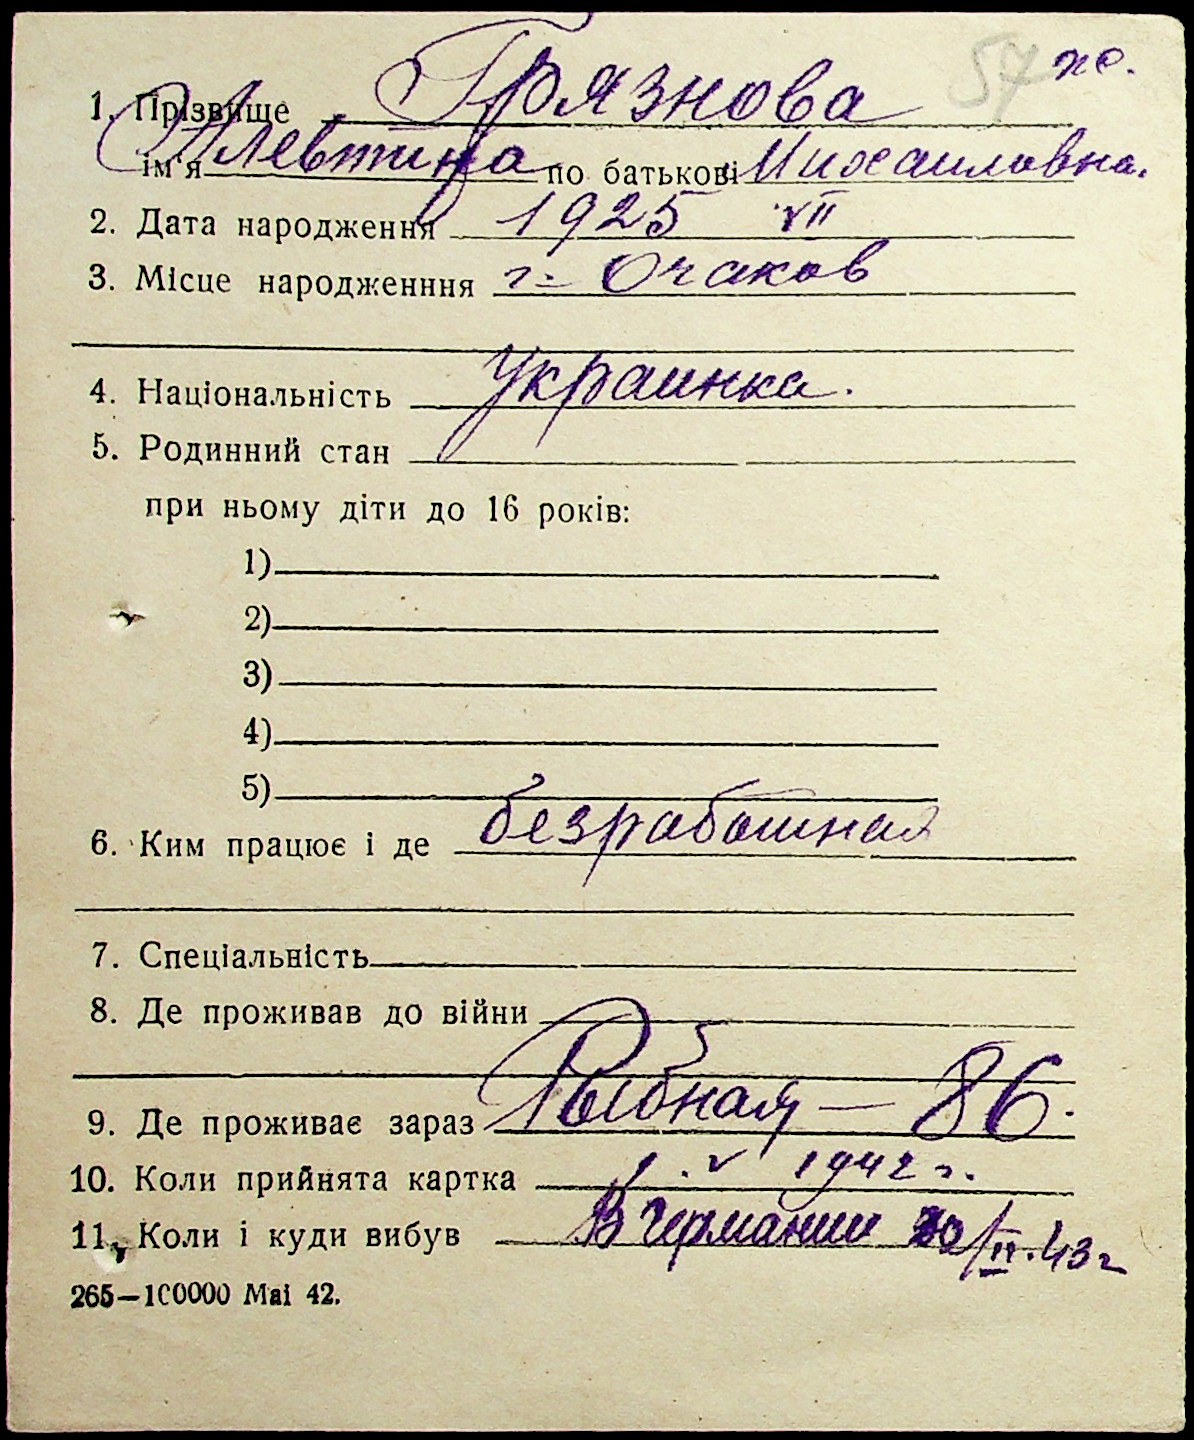 57 ж.
1. Прізвище Грязнова
ім'я Алевтина по батькові Михаиловна.
2. Дата народження 1925 VII
3. Місце народженння г. Очаков
4. Національність Украинка.
5. Родинний стан
при ньому діти до 16 років:
1)
2)
3)
4)
5)
6. Ким працює і де безработная
7. Спеціальність
8. Де проживав до війни
9. Де проживає зараз Рыбная — 86.
10. Коли прийнята картка 1. V 1942 г.
11. Коли і куди вибув В Германии /II.43 г
265—100000 Mai 42.